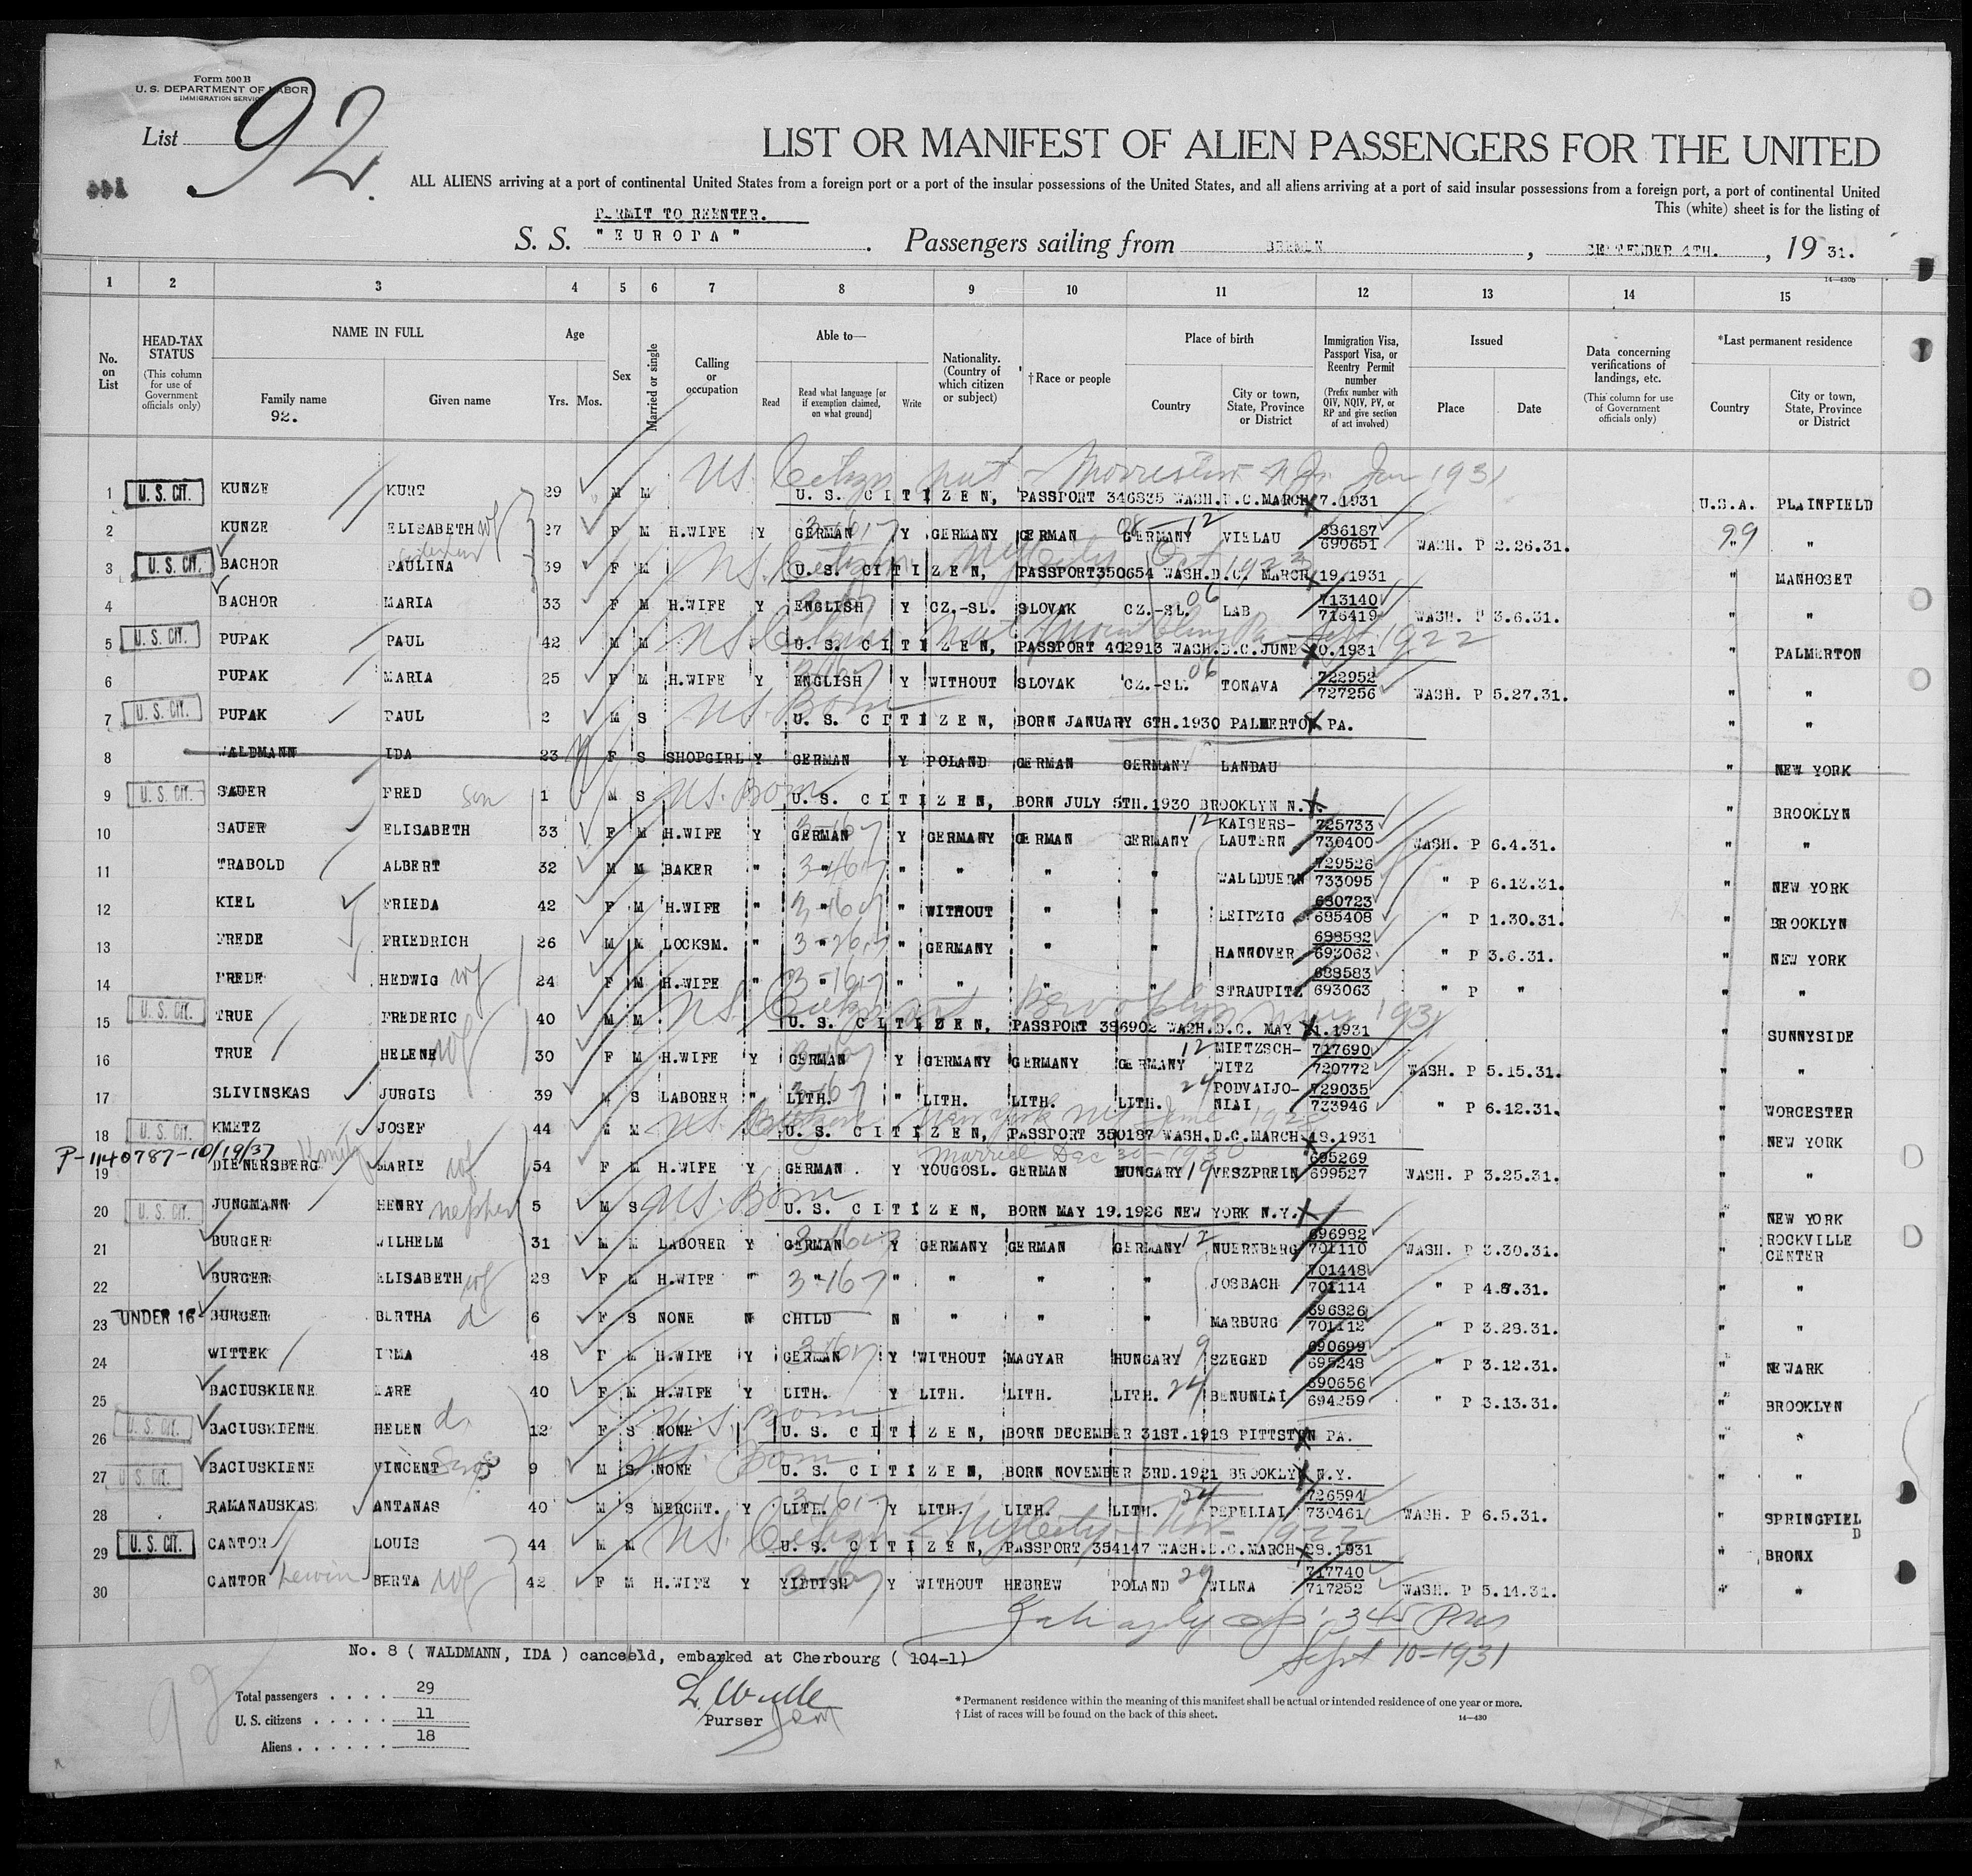 Form 500 B
U. S. DEPARTMENT OF LABOR
IMMIGRATION SERVICE
List 92
LIST OR MANIFEST OF ALIEN PASSENGERS FOR THE UNITED
ALL ALIENS arriving at a port of continental United States from a foreign port or a port of the insular possessions of the United States, and all aliens arriving at a port of said insular possessions from a foreign port, a port of continental United
This (white) sheet is for the listing of
PERMIT TO REENTER.
S. S. "EUROPA" . Passengers sailing from BREMEN , SEPTEMBER 4TH. , 19 31.
14—430b
1 2 3 4 5 6 7 8 9 10 11 12 13 14 15
No. on List
HEAD-TAX STATUS (This column for use of Government officials only)
NAME IN FULL
Family name 92.
Given name
Age
Yrs. Mos.
Sex
Married or single
Calling or occupation
Able to—
Read
Read what language [or if exemption claimed, on what ground]
Write
Nationality. (Country of which citizen or subject)
† Race or people
Place of birth
Country
City or town, State, Province or District
Immigration Visa, Passport Visa, or Reentry Permit number (Prefix number with QIV, NQIV, PV, or RP and give section of act involved)
Issued
Place
Date
Data concerning verifications of landings, etc. (This column for use of Government officials only)
*Last permanent residence
Country
City or town, State, Province or District
US. Citizen nat - Morristown N.J. Jan 1931
1 U. S. CIT. KUNZE KURT 29 M M U. S. CITIZEN, PASSPORT 346835 WASH.D.C.MARCH 7.1931 U.S.A. PLAINFIELD
2 KUNZE ELISABETH wf 27 F M H.WIFE Y GERMAN Y GERMANY GERMAN GERMANY VIELAU 686187 690651 WASH. P 2.26.31. 99 " "
3 U. S. CIT. BACHOR PAULINA 39 F M U. S. CITIZEN, PASSPORT350654 WASH.D.C. MARCH 19.1931 " MANHOSET
4 BACHOR MARIA 33 F M H.WIFE Y ENGLISH Y CZ.-SL. SLOVAK CZ.-SL. 06 LAB 713140 716419 WASH. P 3.6.31. " "
5 U. S. CIT. PUPAK PAUL 42 M M U. S. CITIZEN, PASSPORT 402913 WASH.D.C.JUNE 0.1931 " PALMERTON
6 PUPAK MARIA 25 F M H.WIFE Y ENGLISH Y WITHOUT SLOVAK CZ.-SL. 06 TONAVA 722952 727256 WASH. P 5.27.31. " "
7 U. S. CIT. PUPAK PAUL 2 M S US. Born U. S. CITIZEN, BORN JANUARY 6TH.1930 PALMERTON PA. " "
8 WALDMANN IDA 23 F S SHOPGIRL Y GERMAN Y POLAND GERMAN GERMANY LANDAU " NEW YORK
9 U. S. CIT. SAUER FRED son 1 M S US. Born U. S. CITIZEN, BORN JULY 5TH.1930 BROOKLYN N.Y. " BROOKLYN
10 SAUER ELISABETH 33 F M H.WIFE Y GERMAN Y GERMANY GERMAN GERMANY 12 KAISERS-LAUTERN 725733 730400 WASH. P 6.4.31. " "
11 TRABOLD ALBERT 32 M M BAKER " " " " " " WALLDUERN 729526 733095 " P 6.13.31. " NEW YORK
12 KIEL FRIEDA 42 F M H.WIFE " " " WITHOUT " " LEIPZIG 680723 685408 " P 1.30.31. " BROOKLYN
13 FREDE FRIEDRICH 26 M M LOCKSM. " " " GERMANY " " HANNOVER 698582 693062 " P 3.6.31. " NEW YORK
14 FREDE HEDWIG wf 24 F M H.WIFE " " " " " " STRAUPITZ 688583 693063 " P " " "
15 U. S. CIT. TRUE FREDERIC 40 M M U. S. CITIZEN, PASSPORT 396902 WASH.D.C. MAY 1.1931 " SUNNYSIDE
16 TRUE HELENE wf 30 F M H.WIFE Y GERMAN Y GERMANY GERMANY GERMANY 12 MIETZSCH-WITZ 717690 720772 WASH. P 5.15.31. " "
17 SLIVINSKAS JURGIS 39 M S LABORER " LITH. " LITH. LITH. LITH. 24 PODVAIJO-NIAI 729035 733946 " P 6.12.31. " WORCESTER
18 U. S. CIT. KMETZ JOSEF 44 M M U. S. CITIZEN, PASSPORT 350187 WASH.D.C.MARCH 18.1931 " NEW YORK
P-1140787-10/19/37
Married Dec 30 - 1930
19 DIENERSBERG MARIE wf. 54 F M H.WIFE Y GERMAN. Y YOUGOSL. GERMAN HUNGARY 19 VESZPREIN 695269 699527 WASH. P 3.25.31. " "
20 U. S. CIT. JUNGMANN HENRY nephew 5 M S US. Born U. S. CITIZEN, BORN MAY 19.1926 NEW YORK N.Y. " NEW YORK
21 BURGER WILHELM 31 M M LABORER Y GERMAN Y GERMANY GERMAN GERMANY 12 NUERNBERG 696982 701110 WASH. P 3.30.31. " ROCKVILLE CENTER
22 BURGER ELISABETH wf 28 F M H.WIFE " " " " " " JOSBACH 701448 701114 " P 4.8.31. " "
23 UNDER 16 BURGER BERTHA d 6 F S NONE N CHILD N " " " MARBURG 696826 701112 " P 3.28.31. " "
24 WITTEK IRMA 48 F M H.WIFE Y GERMAN Y WITHOUT MAGYAR HUNGARY 19 SZEGED 690699 695248 " P 3.12.31. " NEWARK
25 BACIUSKIENE MARE 40 F M H.WIFE Y LITH. Y LITH. LITH. LITH. 24 BENUNIAI 690656 694259 " P 3.13.31. " BROOKLYN
26 U. S. CIT. BACIUSKIENE HELEN d. 12 F S NONE U.S. Born U. S. CITIZEN, BORN DECEMBER 31ST.1918 PITTSTON PA. " "
27 U. S. CIT. BACIUSKIENE VINCENT 9 M S NONE US. Born U. S. CITIZEN, BORN NOVEMBER 3RD.1921 BROOKLYN N.Y. " "
28 RAMANAUSKAS ANTANAS 40 M S MERCHT. Y LITH. Y LITH. LITH. LITH. 24 PEPELIAI 726594 730461 WASH. P 6.5.31. " SPRINGFIELD
29 U. S. CIT. CANTOR LOUIS 44 M M U. S. CITIZEN, PASSPORT 354147 WASH.D.C.MARCH 28.1931 " BRONX
30 CANTOR Lewin BERTA wf 42 F M H.WIFE Y YIDDISH Y WITHOUT HEBREW POLAND 29 WILNA 717740 717252 WASH. P 5.14.31. " "
Sept 10-1931
No. 8 ( WALDMANN, IDA ) canceeld, embarked at Cherbourg ( 104-1)
Total passengers . . . . 29
U. S. citizens . . . . . 11
Aliens . . . . . . 18
Purser
* Permanent residence within the meaning of this manifest shall be actual or intended residence of one year or more.
† List of races will be found on the back of this sheet.
14—430